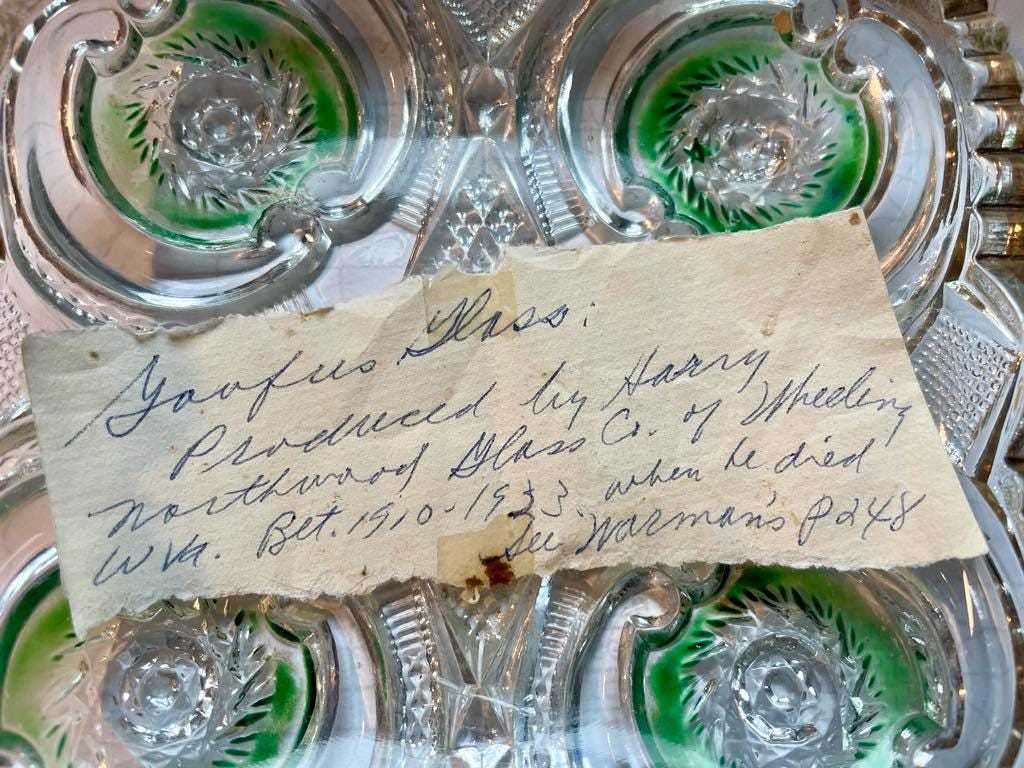 Goofus Glass:
Produced by Harry
Northwood Glass Co. of Wheeling
W Va. Bet. 1910-1933. when he died
See Warman's P 248